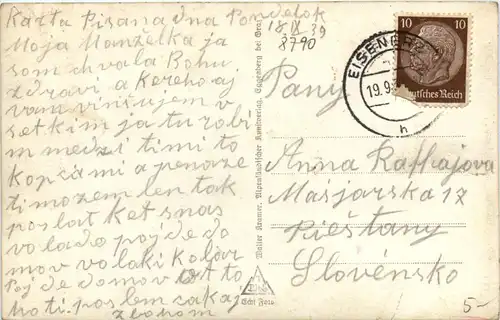 Karta Pisana dna Pondelok
18 IX 39
8790
Moja Manželka ja
som chvala Bohu
zdravi a kereho aj
vam vinšujem v
setkim ja tu robi
m medzi timi to
kopcami a penaze
ti mozem len tak
poslat ket snas
vola do pojde do
mov volaki kolar
Poj de domov tot to
ho ti. poslem zakaj
z bohom
Walter Kramer, Alpenländischer Kunstverlag, Eggenberg bei Graz
Echt Foto
EISENERZ
19.9.
h
10 10
Deutsches Reich
Pany
Anna Raffajova
Mašjarska 17
Piěštany
Slovénsko
5-